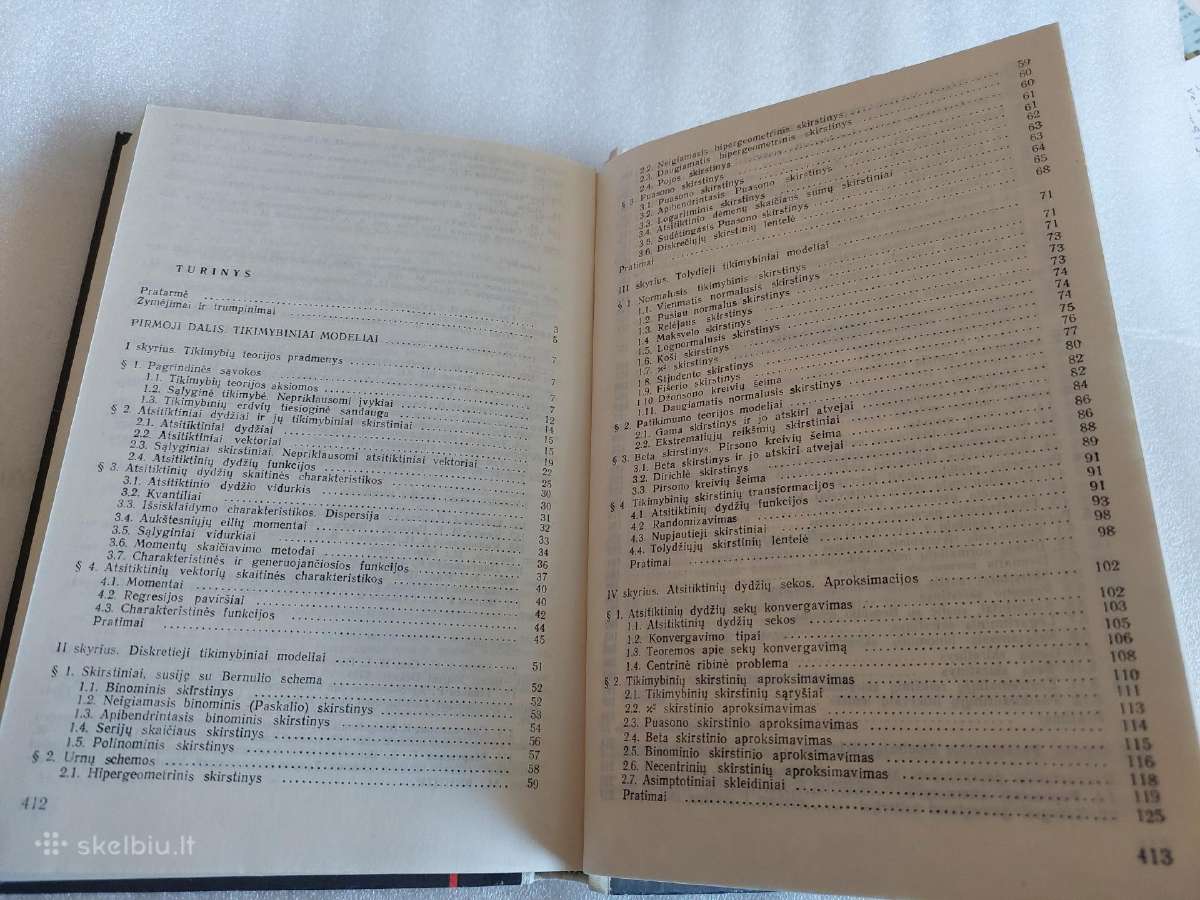 TURINYS
Pratarmė 3
Žymėjimai ir trumpinimai 5
PIRMOJI DALIS. TIKIMYBINIAI MODELIAI
I skyrius. Tikimybių teorijos pradmenys 7
§ 1. Pagrindinės sąvokos 7
1.1. Tikimybių teorijos aksiomos 7
1.2. Sąlyginė tikimybė. Nepriklausomi įvykiai 12
1.3. Tikimybinių erdvių tiesioginė sandauga 14
§ 2. Atsitiktiniai dydžiai ir jų tikimybiniai skirstiniai 15
2.1. Atsitiktiniai dydžiai 15
2.2. Atsitiktiniai vektoriai 19
2.3. Sąlyginiai skirstiniai. Nepriklausomi atsitiktiniai vektoriai 22
2.4. Atsitiktinių dydžių funkcijos 25
§ 3. Atsitiktinių dydžių skaitinės charakteristikos 30
3.1. Atsitiktinio dydžio vidurkis 30
3.2. Kvantiliai 31
3.3. Išsisklaidymo charakteristikos. Dispersija 32
3.4. Aukštesniųjų eilių momentai 33
3.5. Sąlyginiai vidurkiai 34
3.6. Momentų skaičiavimo metodai 36
3.7. Charakteristinės ir generuojančiosios funkcijos 37
§ 4. Atsitiktinių vektorių skaitinės charakteristikos 40
4.1. Momentai 40
4.2. Regresijos paviršiai 42
4.3. Charakteristinės funkcijos 44
Pratimai 45
II skyrius. Diskretieji tikimybiniai modeliai 51
§ 1. Skirstiniai, susiję su Bernulio schema 52
1.1. Binominis skirstinys 52
1.2. Neigiamasis binominis (Paskalio) skirstinys 53
1.3. Apibendrintasis binominis skirstinys 54
1.4. Serijų skaičiaus skirstinys 56
1.5. Polinominis skirstinys 57
§ 2. Urnų schemos 58
2.1. Hipergeometrinis skirstinys 59
412
2.2. Neigiamasis hipergeometrinis skirstinys 59
2.3. Daugiamatis hipergeometrinis skirstinys 60
2.4. Pojos skirstinys 60
§ 3. Puasono skirstinys 61
3.1. Puasono skirstinys 61
3.2. Apibendrintasis Puasono skirstinys 62
3.3. Logaritminis skirstinys 63
3.4. Atsitiktinio dėmenų skaičiaus sumų skirstiniai 64
3.5. Sudėtingasis Puasono skirstinys 65
3.6. Diskrečiųjų skirstinių lentelė
Pratimai 68
III skyrius. Tolydieji tikimybiniai modeliai 71
§ 1 Normalusis tikimybinis skirstinys 71
1.1. Vienmatis normalusis skirstinys 71
1.2. Pusiau normalus skirstinys 73
1.3. Relėjaus skirstinys 73
1.4. Maksvelo skirstinys 74
1.5. Lognormalusis skirstinys 74
1.6. Koši skirstinys 74
1.7. ϰ² skirstinys 75
1.8. Stjudento skirstinys 76
1.9. Fišerio skirstinys 77
1.10 Džonsono kreivių šeima 80
1.11. Daugiamatis normalusis skirstinys 82
§ 2. Patikimumo teorijos modeliai 82
2.1. Gama skirstinys ir jo atskiri atvejai 84
2.2. Ekstremaliųjų reikšmių skirstiniai 86
§ 3. Beta skirstinys. Pirsono kreivių šeima 86
3.1. Beta skirstinys ir jo atskiri atvejai 88
3.2. Dirichlė skirstinys 89
3.3 Pirsono kreivių šeima 91
§ 4 Tikimybinių skirstinių transformacijos 91
4.1 Atsitiktinių dydžių funkcijos 93
4.2 Randomizavimas
4.3 Nupjautieji skirstiniai
4.4. Tolydžiųjų skirstinių lentelė 98
Pratimai 98
IV skyrius. Atsitiktinių dydžių sekos. Aproksimacijos 102
§ 1. Atsitiktinių dydžių sekų konvergavimas 102
1.1. Atsitiktinių dydžių sekos 103
1.2. Konvergavimo tipai 105
1.3. Teoremos apie sekų konvergavimą 106
1.4. Centrinė ribinė problema 108
§ 2. Tikimybinių skirstinių aproksimavimas 110
2.1. Tikimybinių skirstinių sąryšiai 111
2.2. ϰ² skirstinio aproksimavimas 113
2.3. Puasono skirstinio aproksimavimas 114
2.4. Beta skirstinio aproksimavimas 115
2.5. Binominio skirstinio aproksimavimas 116
2.6. Necentrinių skirstinių aproksimavimas 118
2.7. Asimptotiniai skleidiniai 119
Pratimai 125
413
skelbiu.lt